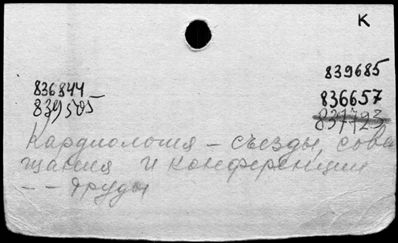 К
836844 –
839505
839685
836657
831723
Кардиология – съезды, сове
щания и конференции
– – труды